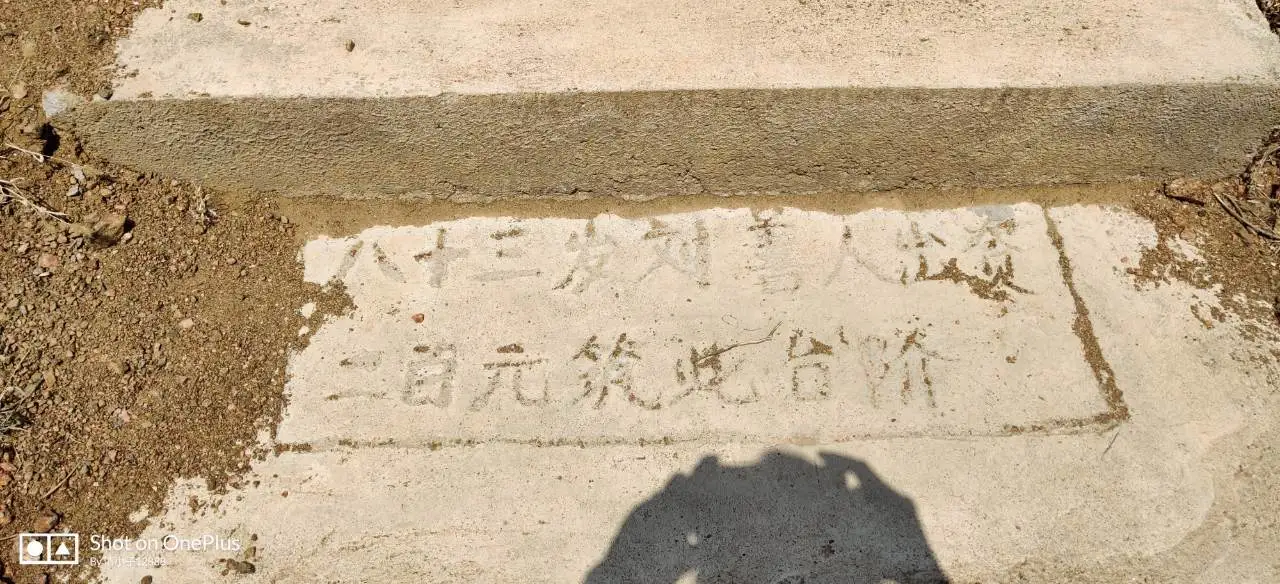 八十三岁刘善人出资
三百元筑此台阶
Shot on OnePlus